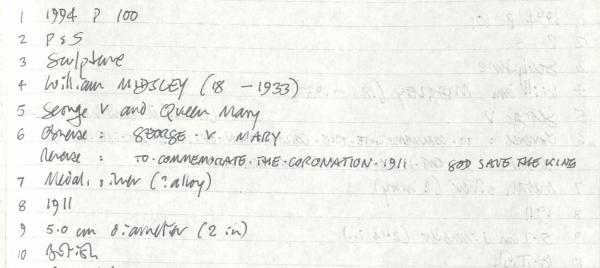 1 1994 P 100
2 P & S
3 Sculpture
4 William MIDSLEY (18 - 1933)
5 George V and Queen Mary
6 Obverse : GEORGE · V MARY
Reverse : TO · COMMEMORATE · THE · CORONATION · 1911 GOD SAVE THE KING
7 Medal, silver (? alloy)
8 1911
9 5.0 cm diameter (2 in)
10 British